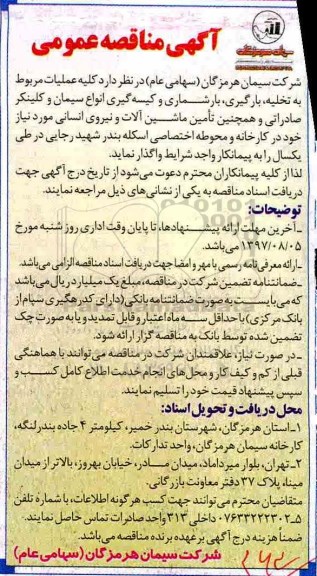 آگهی مناقصه عمومی
شرکت سیمان هرمزگان (سهامی عام) در نظر دارد کلیه عملیات مربوط
به تخلیه، بارگیری، بارشماری و کیسه‌گیری انواع سیمان و کلینکر
صادراتی و همچنین تأمین ماشین آلات و نیروی انسانی مورد نیاز
خود در کارخانه و محوطه اختصاصی اسکله بندر شهید رجایی در طی
یکسال را به پیمانکار واجد شرایط واگذار نماید.
لذا از کلیه پیمانکاران محترم دعوت می‌شود از تاریخ درج آگهی جهت
دریافت اسناد مناقصه به یکی از نشانی‌های ذیل مراجعه نمایند.
توضیحات:
-آخرین مهلت ارائه پیشنهادها، تا پایان وقت اداری روز شنبه مورخ
۱۳۹۷/۰۸/۰۵ می‌باشد.
-ارائه معرفی نامه رسمی با مهر و امضا جهت دریافت اسناد مناقصه الزامی می‌باشد.
-ضمانتنامه تضمین شرکت در مناقصه، مبلغ یک میلیارد ریال می‌باشد
که می‌بایست به صورت ضمانتنامه بانکی (دارای کد رهگیری سپام از
بانک مرکزی) با حداقل سه ماه اعتبار و قابل تمدید و یا به صورت چک
تضمین شده توسط بانک به مناقصه گزار ارائه شود.
-در صورت نیاز، علاقمندان شرکت در مناقصه می‌توانند با هماهنگی
قبلی از کم و کیف کار و محل‌های انجام خدمت اطلاع کامل کسب و
سپس پیشنهاد قیمت خود را تسلیم نمایند.
محل دریافت و تحویل اسناد:
۱-استان هرمزگان، شهرستان بندر خمیر، کیلومتر ۴ جاده بندرلنگه،
کارخانه سیمان هرمزگان، واحد تدارکات.
۲-تهران، بلوار میرداماد، میدان مادر، خیابان بهروز، بالاتر از میدان
مینا، پلاک ۳۷ دفتر معاونت بازرگانی.
متقاضیان محترم می‌توانند جهت کسب هر گونه اطلاعات، با شماره تلفن
۵-۰۷۶۳۳۲۲۲۳۰۲ داخلی ۳۱۳ واحد صادرات تماس حاصل نمایند.
ضمناً هزینه درج آگهی بر عهده برنده مناقصه می‌باشد.
شرکت سیمان هرمزگان (سهامی عام)